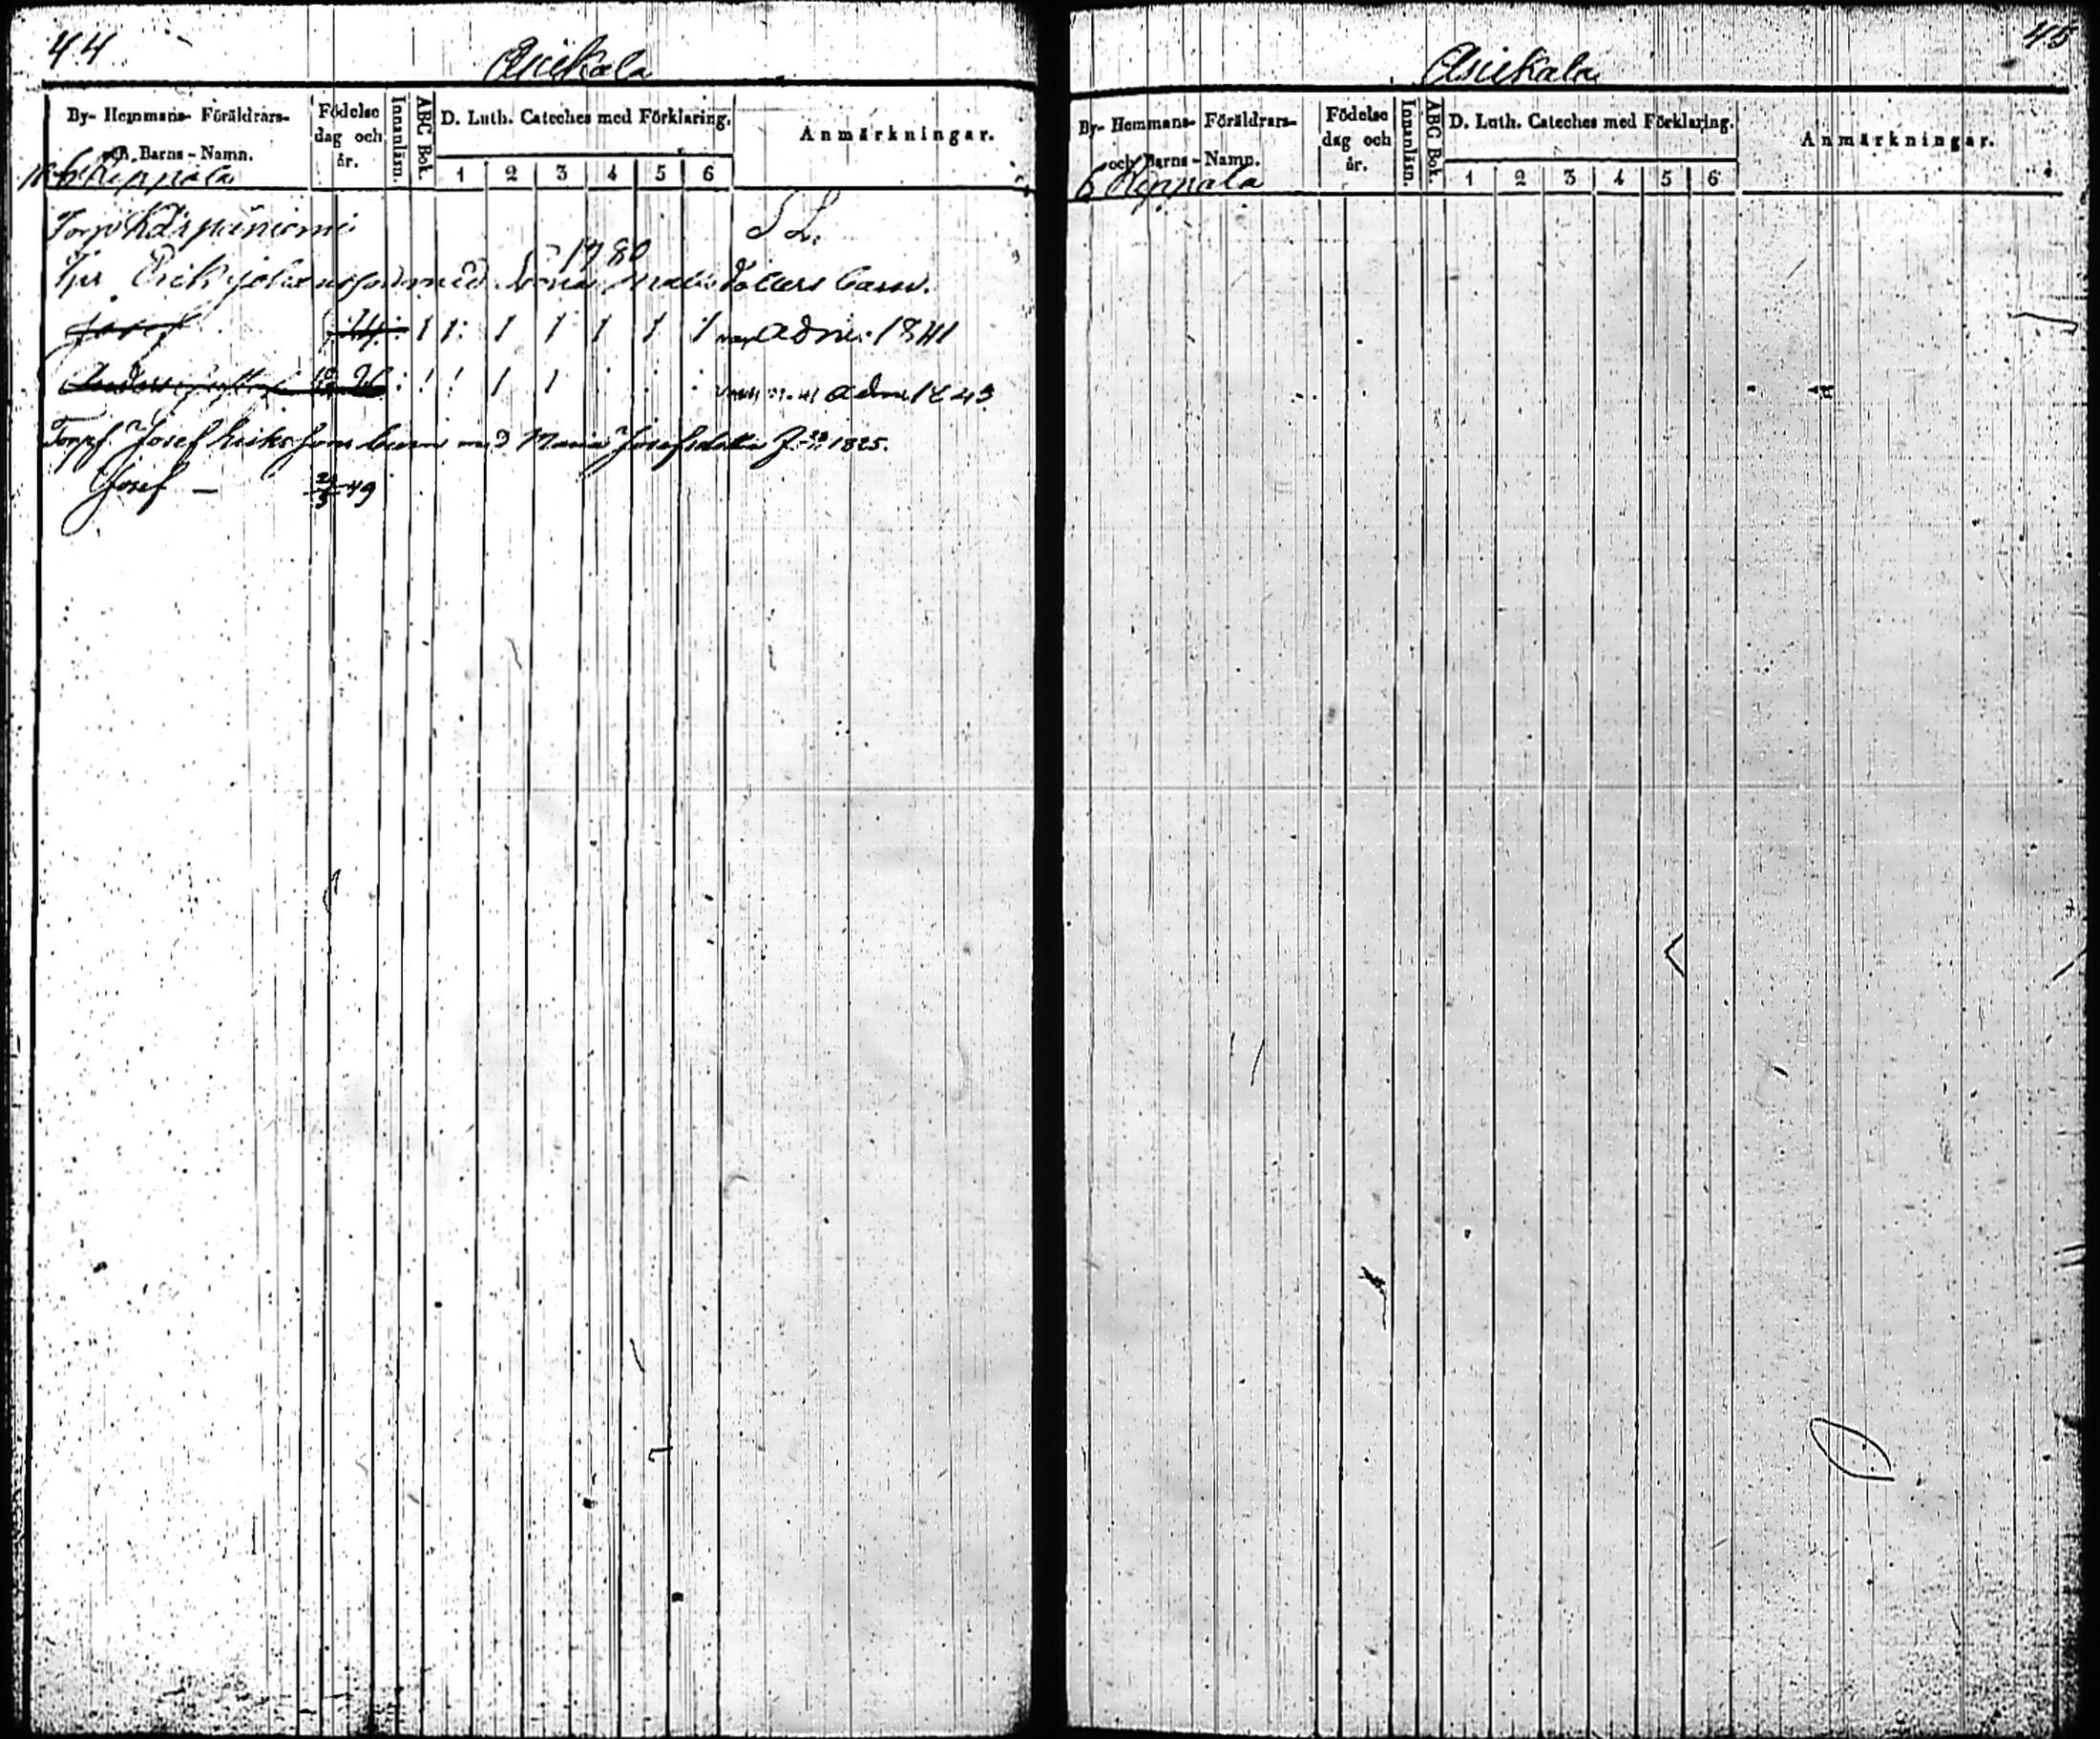 44
Asikala
By- Hemmans- Föräldrars- och Barns-Namn.
Födelse dag och år.
Innanläsn.
ABC Bok.
D. Luth. Cateches med Förklaring.
1 2 3 4 5 6
Anmärkningar.
6 Reppala
Torp
S L.
1780
Erik Johansson med Maria dotters barn.
Josef 24 1 1 1 1 1 1 1 adm: 1841
Anders 26 1 1 1 1 adm 1843
Torpf. Josef Eriksson barn med Maria Josefsdotter f. 1825.
Josef — 49
45
Asikala
By- Hemmans- Föräldrars- och Barns-Namn.
Födelse dag och år.
Innanläsn.
ABC Bok.
D. Luth. Cateches med Förklaring.
1 2 3 4 5 6
Anmärkningar.
6 Reppala